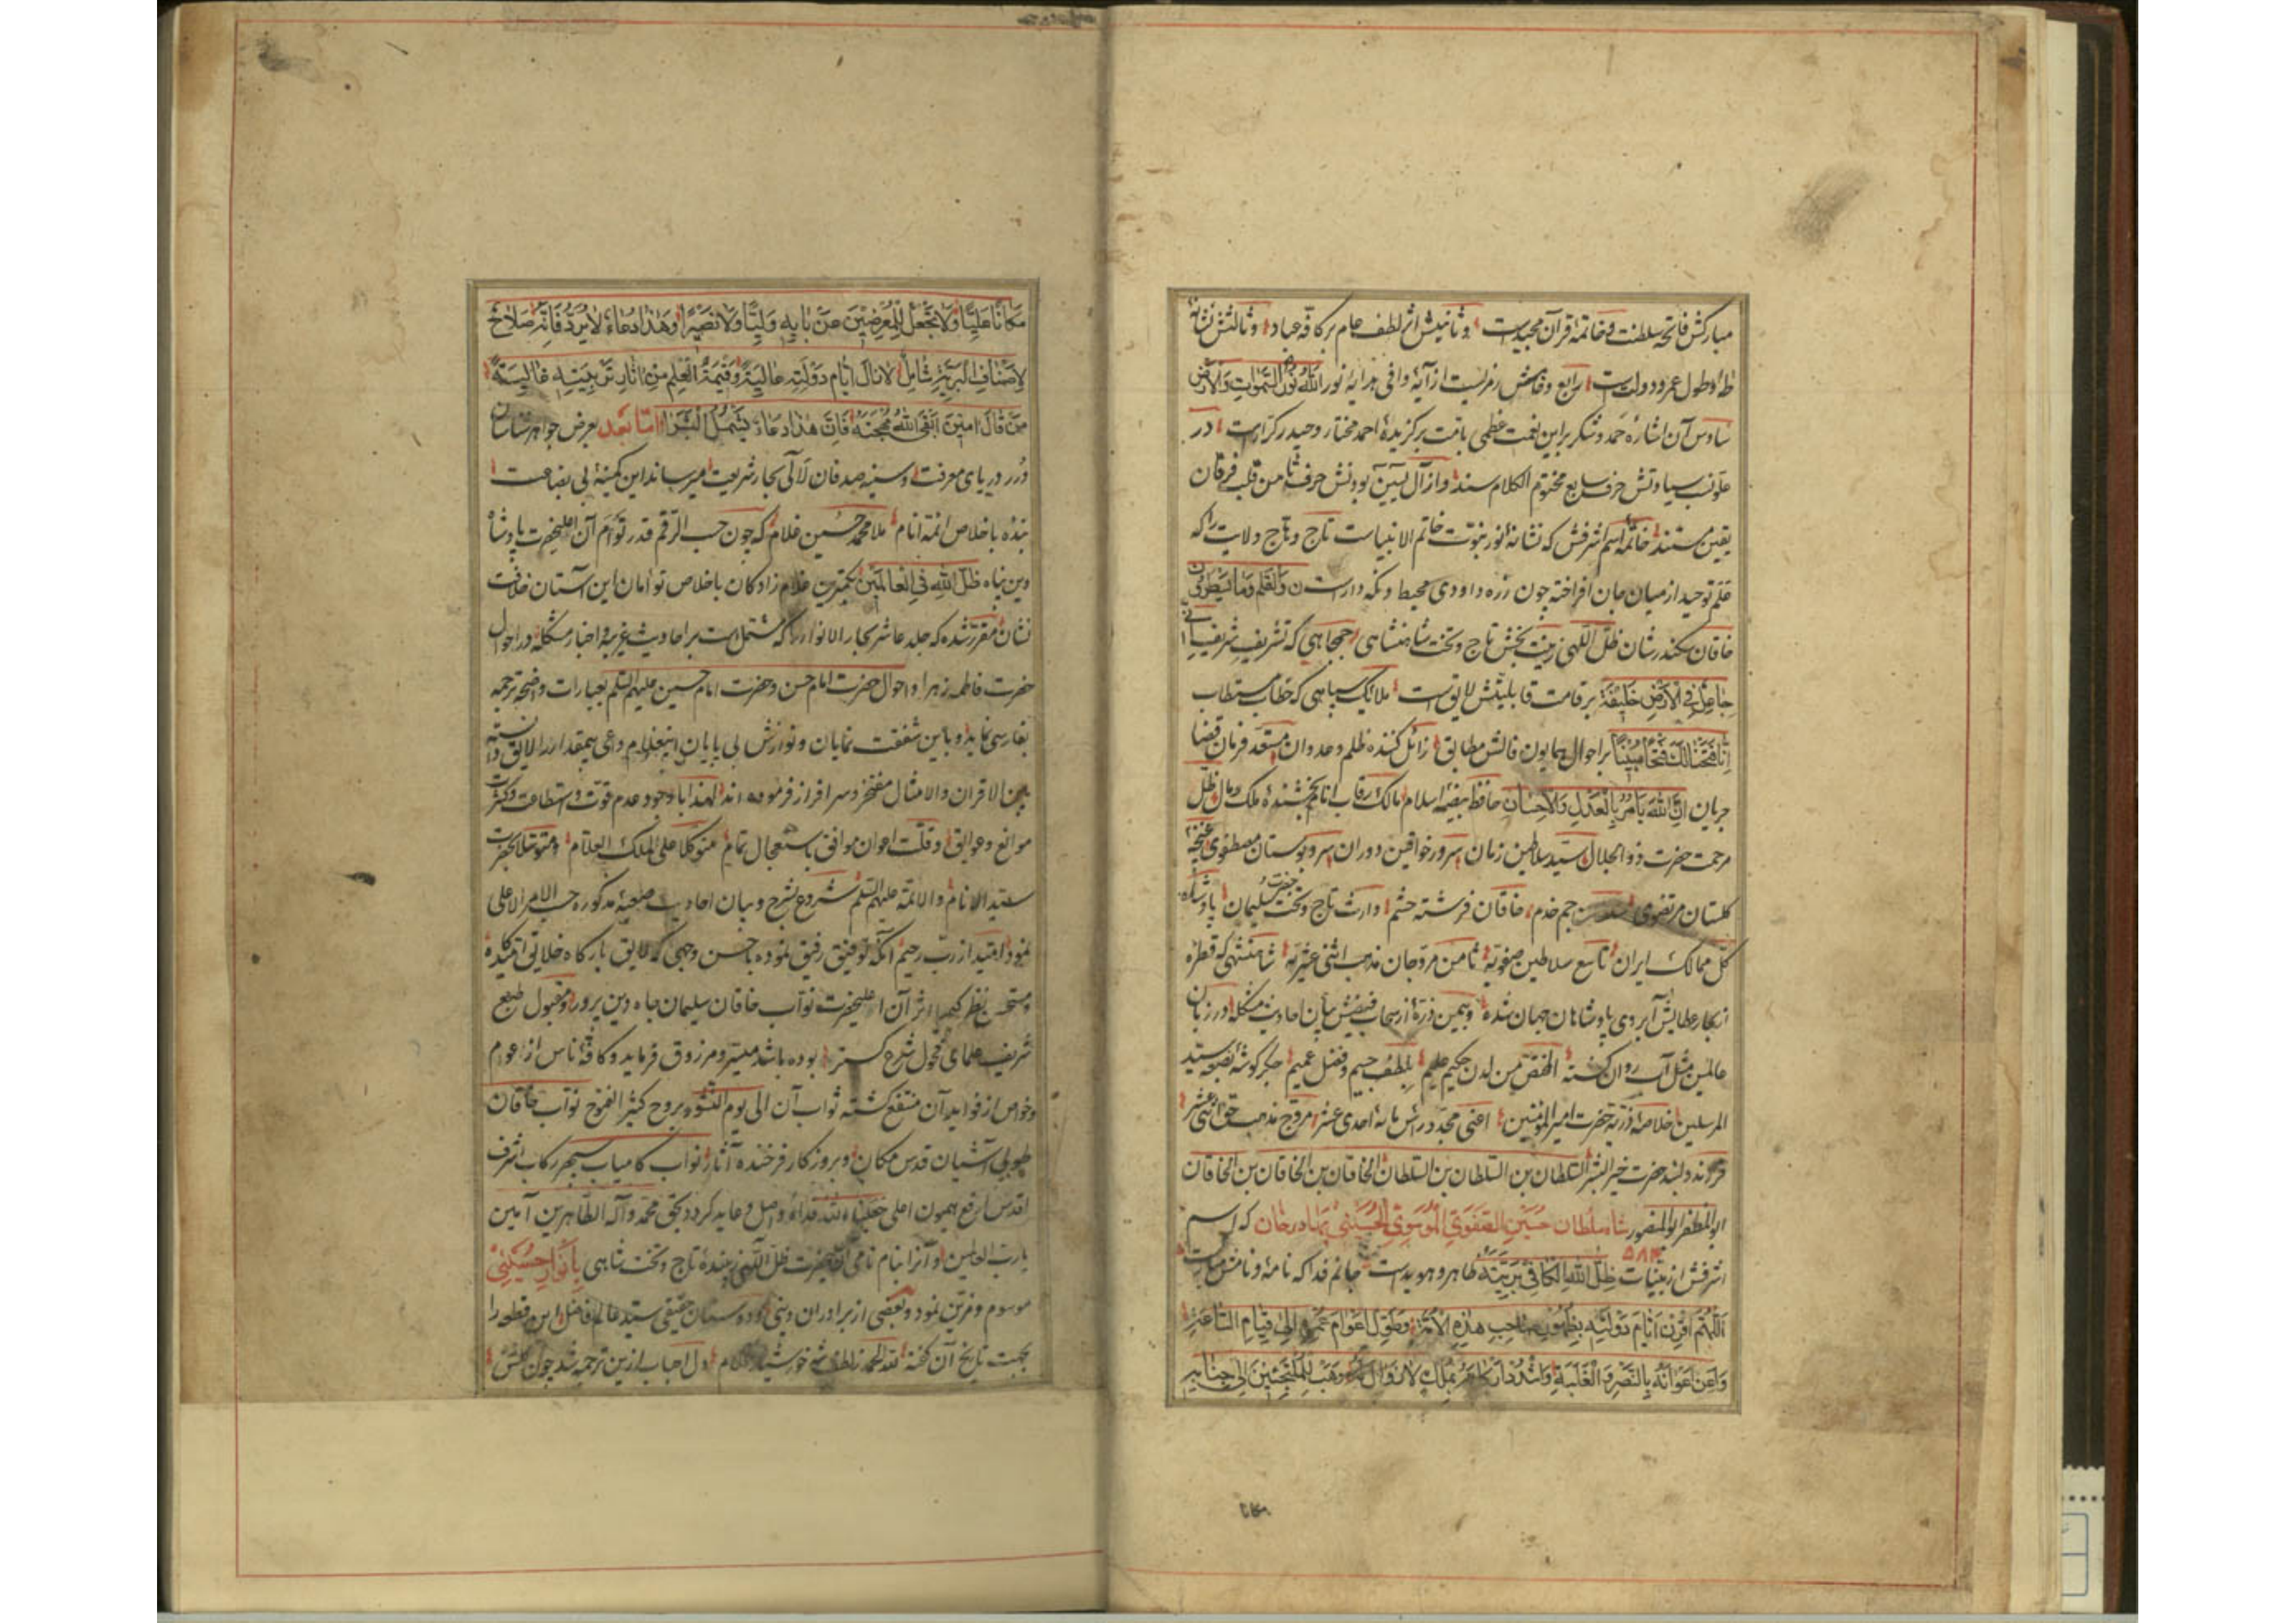 مبارکش فاتحه سلطنت و خاتمهٔ قرآن مجید است و ثانیش اثر لطف عام بر کافهٔ عباد و ثالثش نشانهٔ
طه و طول عمر و دولت است رابع و خامش رمزیست از آیهٔ وافی هدایه نور الله نور السموات والارض
سادس آن اشاره حمد و شکر بر این نعمت عظمی بافت برگزیدهٔ احمد مختار و حیدر کرّار است در
علو نسب سیادتش حرف سابع مختوم الکلام سند و از آل یسین بودنش حرف ثامن قلب فرقان
یقین مستند خاتمهٔ اسم اشرفش که نشانهٔ نور نبوّت خاتم الانبیاست تاج و تاج ولایت را که
علم توحید از میان جان افراخته چون زره داودی محیط و نگه دار است ن والقلم وما یسطرون
خاقان سکندرشان ظلّ اللهی زینت بخش تاج و تخت شاهنشاهی جمجاهی که تشریف شریف انّی
جاعل فی الارض خلیفة بر قامت قابلیتش لایق است ملائک سپاهی که خطاب مستطاب
انا فتحنا لک فتحا مبینا بر احوال همایون فالش مطابق زائل کننده ظلم و عدوان مستعد فرمان قضا
جریان ان الله یامر بالعدل والاحسان حافظ بیضهٔ اسلام مالک رقاب انام بخشندهٔ ملک و مال ظلّ
مرحمت حضرت ذو الجلال سیّد سلاطین زمان سرور خواقین دوران سرو بوستان مصطفوی غنچهٔ
گلستان مرتضوی جم خدم خاقان فرشته حشم وارث تاج و تخت حضرت سلیمان پادشاه
کلّ ممالک ایران تاسع سلاطین صفویّه ثامن مروّجان مذهب اثنی عشریّه شاهنشهی که قطره
از بحار عطایش آبروی پادشاهان جهان شده و بیمن ذرّهٔ از سحاب فیضش بیان احادیث مشکله در زبان
عالمین مثل آب روان گشته من لدن حکیم علیم بلطف جسیم و فضل عمیم جگرگوشهٔ بضعهٔ سیّد
المرسلین خلاصهٔ ذرّیه حضرت امیر المؤمنین اعنی مجدّد راس مائه احدی عشر مروّج مذهب حقّ اثنی عشر
فرزند دلبند حضرت خیر البشر السلطان بن السلطان بن السلطان الخاقان بن الخاقان بن الخاقان
ابو المظفر ابو المنصور شاه سلطان حسین الصفوی الموسوی الحسینی بهادر خان که اسم
اشرفش از بیّنات ظلّ الله الکافی بریّته ظاهر و هویداست جانم فدا که نامه و نامش
اللهم اقرن ایام دولته بظهور صاحب هذه الامّة وطوّل اعوام عمره الی قیام الساعة
واعن اعوانه بالنصر والغلبة واشدد ارکانه بملک لا زوال له وهب للملتجئین الی جنابه
مکانا
مکانا علیّا ولا تجعل للمعرضین عن بابه ولیّا ولا نصیرا وهذا دعاء لا یردّ فانّه صلاح
لاصناف البریّة شامل لا زال ایّام دولته عالیة وقیمة العلم من آثار تربیته غالیة
من قال امین ابقی الله مهجته فانّ هذا دعاء یشمل البشرا امّا بعد بعرض جواهرشناسان
درر دریای معرفت و سینه صدفان لآلی بحار شریعت میرساند این کمینهٔ بی بضاعت
بنده با خلاص ائمهٔ انام ملا محمد حسین غلام که چون حسب الرقم قدر توأم آن اعلیحضرت پادشاه
دین پناه ظلّ الله فی العالمین بکمترین غلام زادگان با خلاص تو امان این آستان خلافت
نشان مقرّر شده که جلد عاشر بحار الانوار را که مشتمل است بر احادیث غریبه و اخبار مشکله در احوال
حضرت فاطمه زهرا و احوال حضرت امام حسن و حضرت امام حسین علیهم السلم بعبارات واضحه ترجمه
بفارسی نماید و باین شفقت نمایان و نوازش بی پایان اینغلام داعی بیمقدار را لایق دانسته
بین الاقران والامثال مفتخر و سر افراز فرموده اند لهذا با وجود عدم قوّت و استطاعت و کثرت
موانع و عوایق و قلّت اعوان موافق باستعجال تمام متوکلا علی الملک العلّام و متوسّلا بحضرت
سیّد الانام والائمّة علیهم السّلم شروع بشرح و بیان احادیث صعبهٔ مذکوره حسب الامر الاعلی
نمود امّید از ربّ رحیم آنکه توفیق رفیق نموده باحسن وجهی که لایق بارگاه خلایق امّیدگاه
و مستحسن نظر کیمیا اثر آن اعلیحضرت نوّاب خاقان سلیمان جاه دین پرور و مقبول طبع
شریف علمای فحول شرع گستر بوده باشد میسّر و مرزوق فرماید و کافّهٔ ناس از اعوام
و خواص از فواید آن منتفع گشته ثواب آن الی یوم النشور بروح کثیر الفتوح نوّاب خاقان
طوبی آشیان قدس مکان و بروزکار فرخنده آثار نواب کامیاب سپهر رکاب اشرف
اقدس ارفع همیون اعلی جعلناه الله فداه واصل و عاید گردد بحق محمّد وآله الطّاهرین آمین
یا ربّ العالمین و آنرا بنام نامی آن اعلیحضرت ظلّ اللّهی زیبندهٔ تاج و تخت شاهی بانوار حسینی
موسوم و مزیّن نمود و بعضی از برادران دینی و دوستان حقیقی سیّد عالم فاضل این قطعه را
بجهت تاریخ آن گفته لله الحمد ز لطف شه خورشید غلام دل احباب ازین ترجمه شد چون گلشن